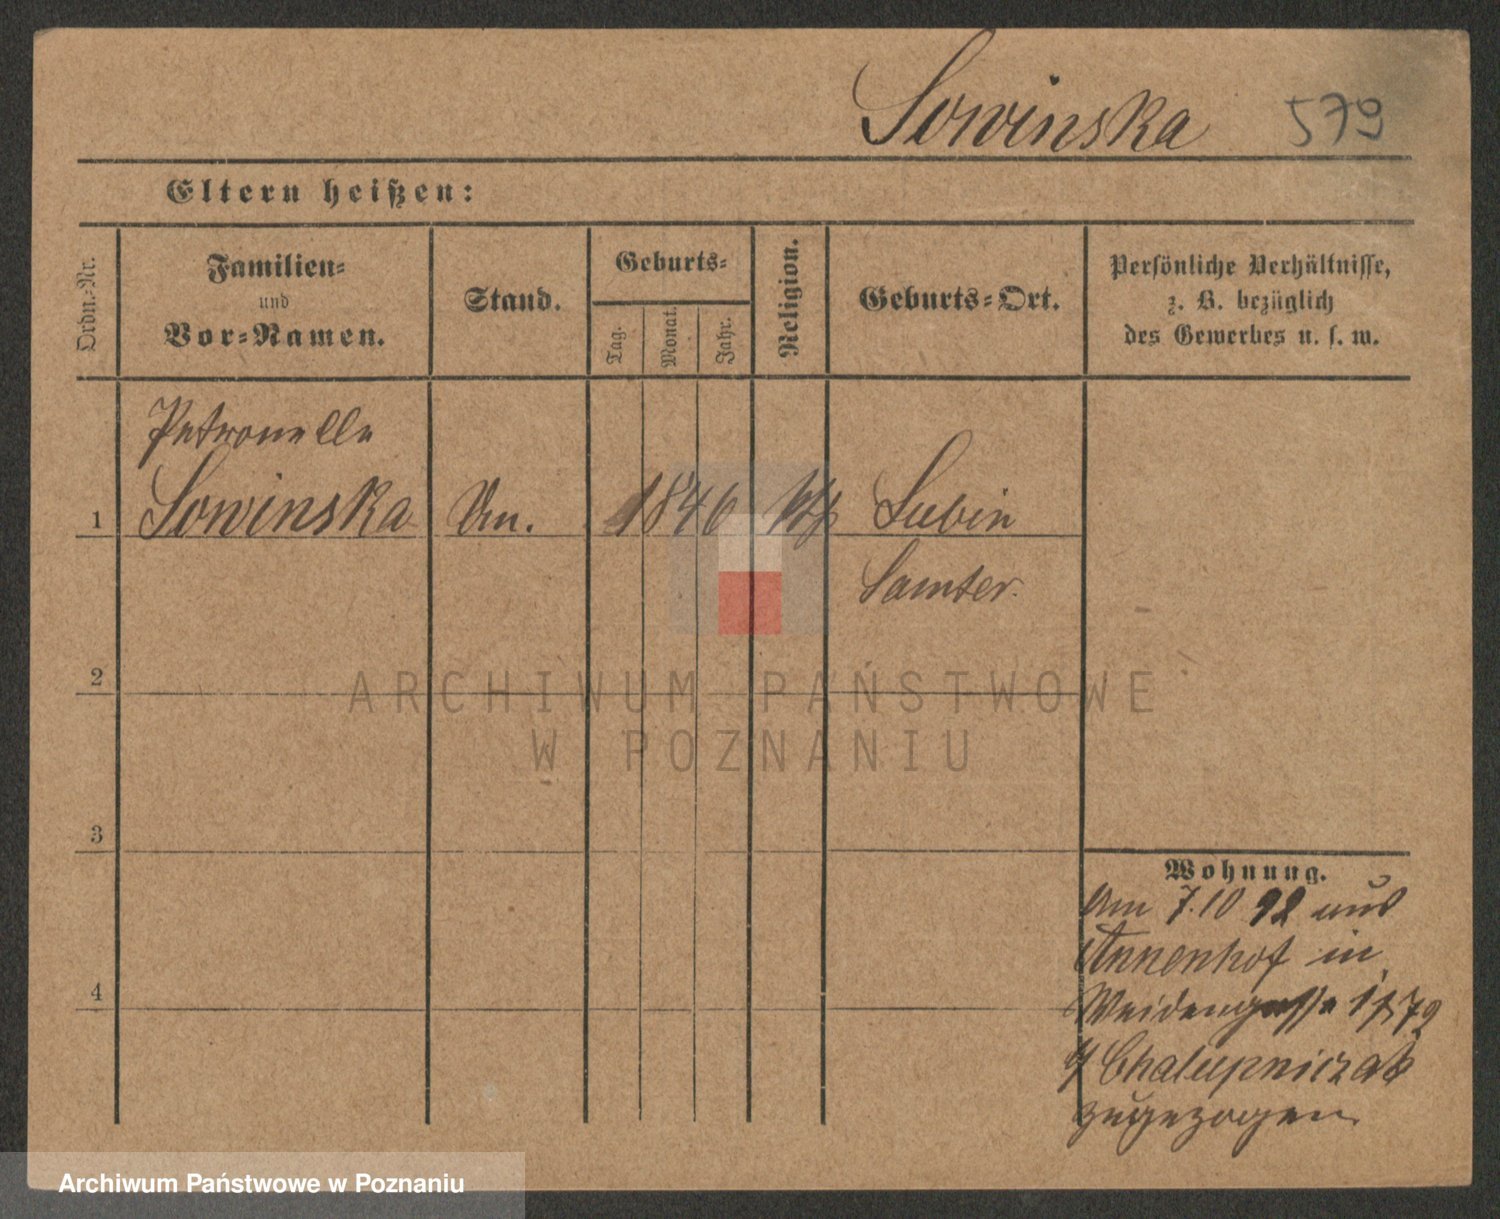 Sowinska 579
Eltern heißen:
Ordn.-Nr.
Familien-
und
Vor-Namen.
Stand.
Geburts-
Tag.
Monat.
Jahr.
Religion.
Geburts-Ort.
Persönliche Verhältnisse,
z. B. bezüglich
des Gewerbes u. s. w.
Petronella
1 Sowinska 1846 Lubin
Samter.
2
3
4
Wohnung.
Am 7.10 92 aus
Annenhof in
Weidengasse
Chalupniczak
zugezogen
ARCHIWUM PAŃSTWOWE
W POZNANIU
Archiwum Państwowe w Poznaniu